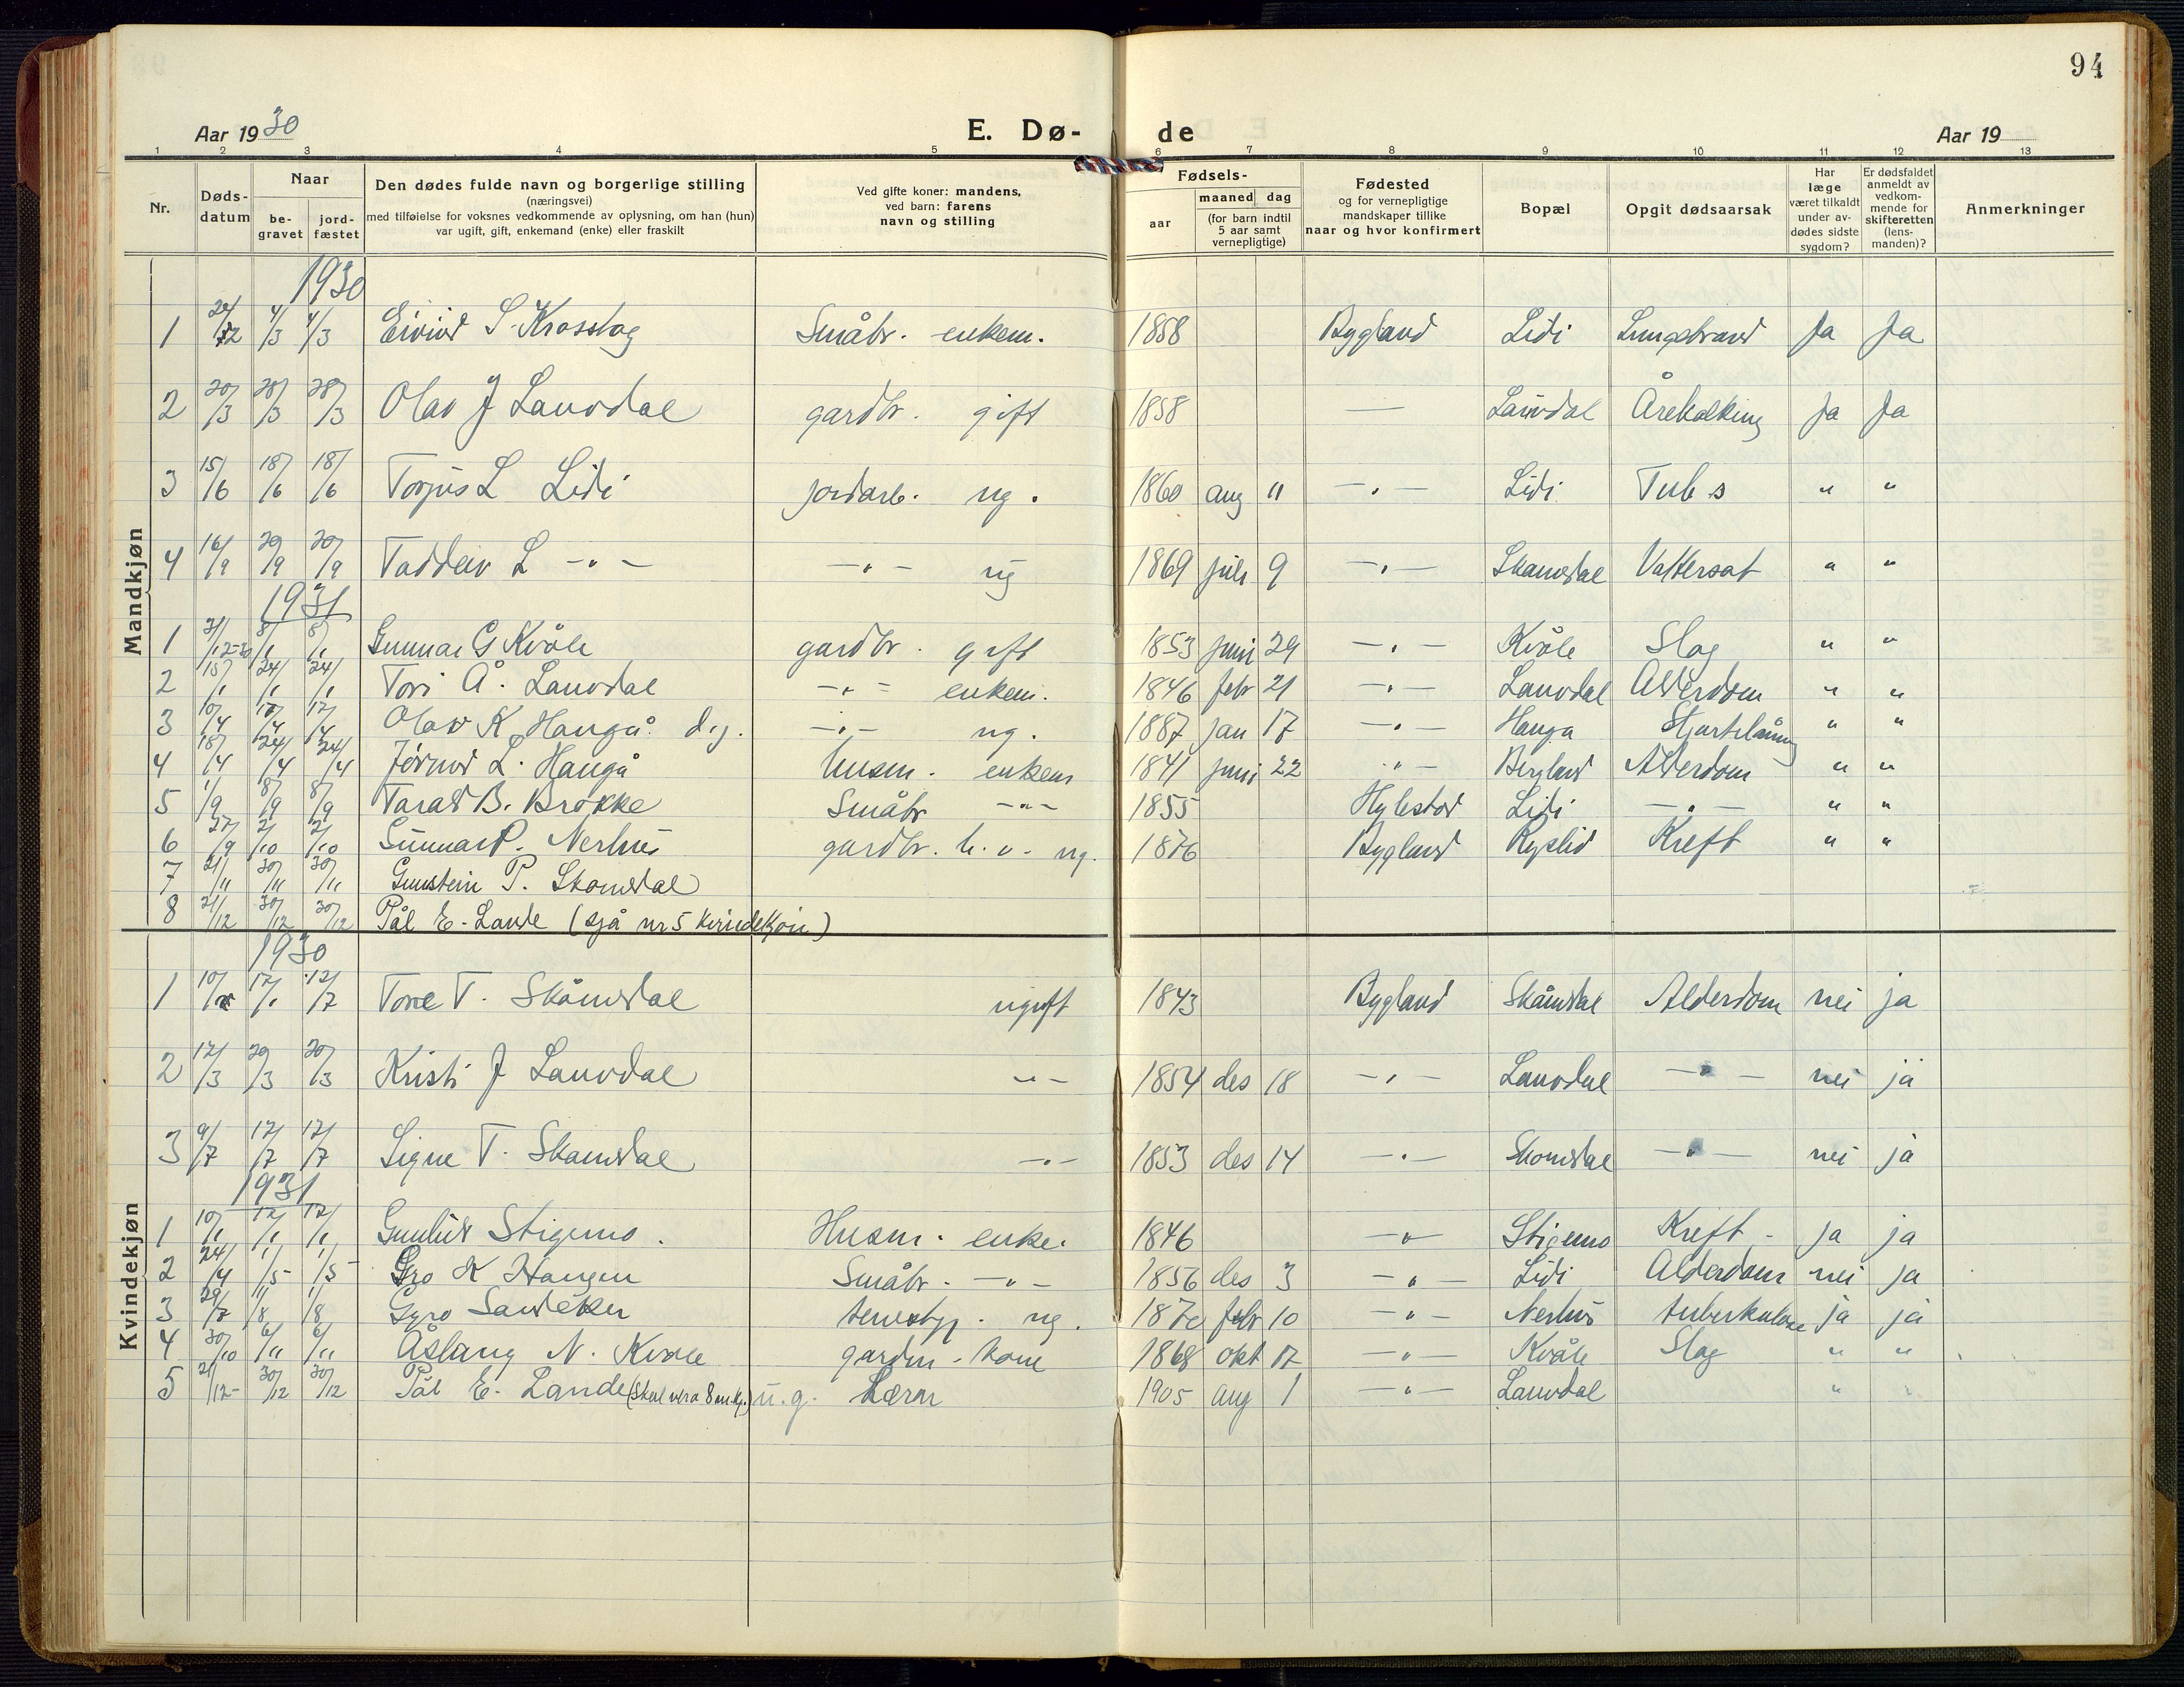 94
Aar 1930
E. Dø-
de
Aar 19
1 2 3 4 5 6 7 8 9 10 11 12 13
Nr.
Døds-
datum
Naar
be-
gravet
jord-
fæstet
Den dødes fulde navn og borgerlige stilling
(næringsvei)
med tilføielse for voksnes vedkommende av oplysning, om han (hun)
var ugift, gift, enkemand (enke) eller fraskilt
Ved gifte koner: mandens,
ved barn: farens
navn og stilling
Fødsels-
aar
maaned dag
(for barn indtil
5 aar samt
vernepligtige)
Fødested
og for vernepligtige
mandskaper tillike
naar og hvor konfirmert
Bopæl
Opgit dødsaarsak
Har
læge
været tilkaldt
under av-
dødes sidste
sygdom?
Er dødsfaldet
anmeldt av
vedkom-
mende for
skifteretten
(lens-
manden)?
Anmerkninger
Mandkjøn
1930
1 4/3 4/3 Eivind S. Krosslag Småbr. enkem. 1858 Bygland Lidi Lungebrand Ja Ja
2 20/3 28/3 28/3 Olav J Lauvdal gardbr. gift 1858 — Lauvdal Årekalking Ja Ja
3 15/6 18/6 18/6 Torjus L Lidi jordarb. ug. 1860 aug 11 -"- Lidi Tub s " "
4 16/9 20/9 20/9 Taddeiv L -"- -"- ug 1869 juli 9 -"- Skamsdal Vattersot " "
1931
1 31/12-30 8/1 8/1 Gunnar G Kvåle gardbr. gift 1853 juni 29 -"- Kvåle Slag " "
2 15/1 24/1 24/1 Tori Å. Lauvdal -"- enkem. 1846 febr 21 -"- Lauvdal Alderdom " "
3 10/4 17/4 17/4 Olav K. Haugå d.y. -"- ug. 1887 jan 17 -"- Hauga Hjartelåming " "
4 18/4 24/4 24/4 Jørund L. Haugå husm. enkem 1841 juni 22 -"- Bergland Alderdom " "
5 1/9 8/9 8/9 Tarald B. Brokke Småbr -"- 1855 Hylestad Lidi -"- " "
6 27/9 2/10 2/10 Gunnar P. Nerhus gardbr. h. v. ug. 1876 Bygland Ryslid Kreft " "
7 21/11 30/11 30/11 Gunstein P. Skomedal
8 21/12 30/12 30/12 Pål E. Lande (sjå nr 5 kvindekjøn)
Kvindekjøn
1930
1 17/1 17/7 Tone T. Skåmdal ugift 1843 Bygland Skåmdal Alderdom nei ja
2 12/3 20/3 20/3 Kristi J Lauvdal -"- 1854 des 18 -"- Lauvdal -"- nei ja
3 9/7 17/7 17/7 Signe T. Skamdal -"- 1853 des 14 -"- Skomdal -"- nei ja
1931
1 10/1 17/1 17/1 Gunhild Stigemo. Husm. enke. 1846 -"- Stigemo Kreft - ja ja
2 24/4 1/5 1/5 Gro K Haugen Småbr. -"- 1856 des 3 -"- Lidi Alderdom nei ja
3 29/7 1/8 1/8 Gyro Sandeker ug. 1870 febr 10 -"- Nerhus tuberkulose ja ja
4 30/10 6/11 6/11 Åslaug N. Kvåle gardm.-kone 1868 okt 17 -"- Kvåle Slag " "
5 21/12- 30/12 30/12 Pål E. Lande (skal vera 8 m.kj.) u.g. Lærar 1905 aug 1 -"- Lauvdal " "